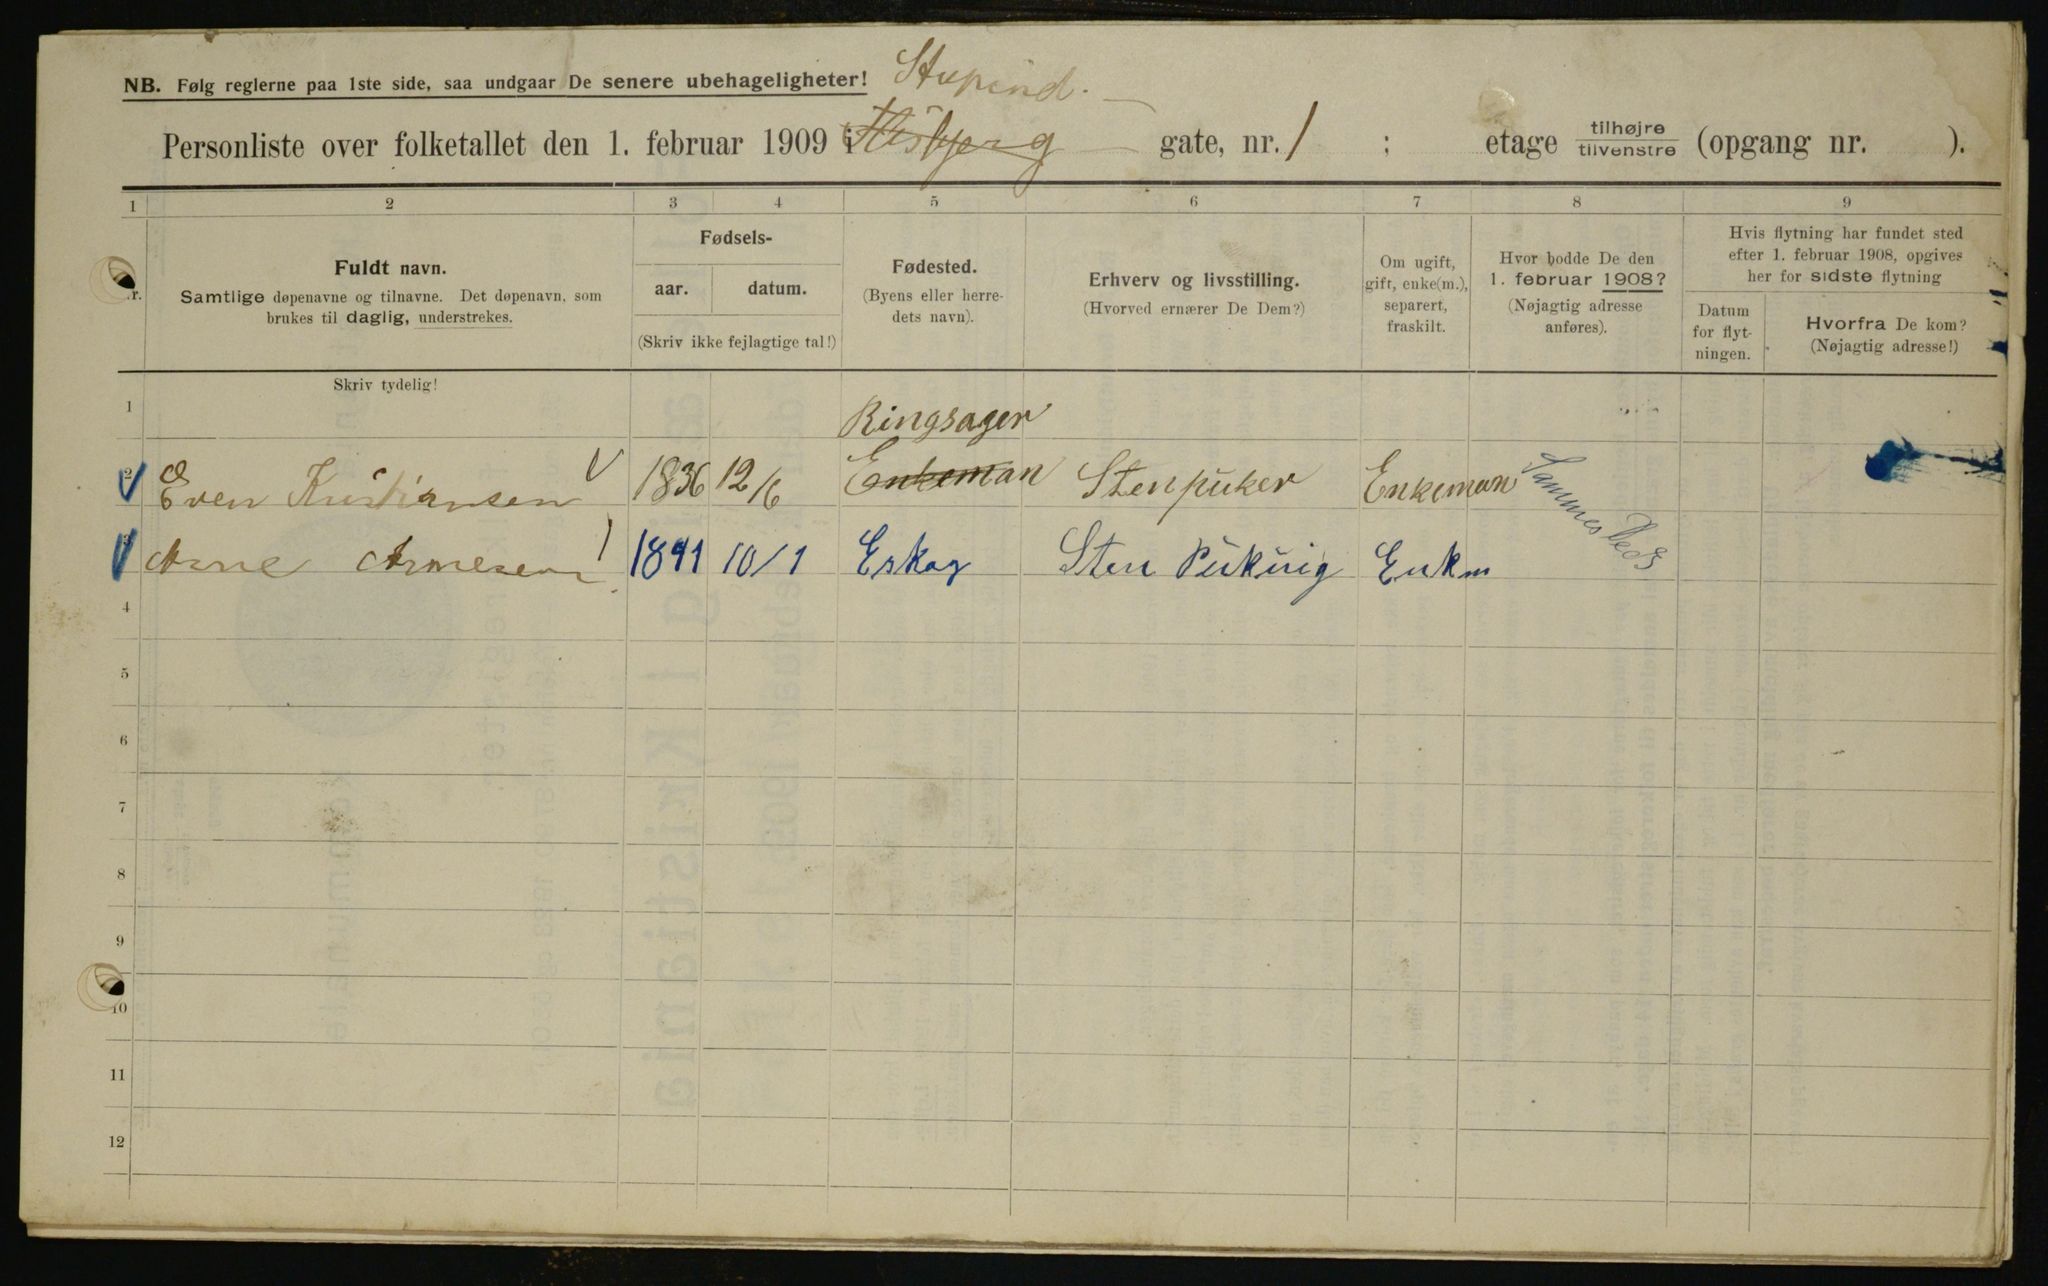 NB. Følg reglerne paa 1ste side, saa undgaar De senere ubehageligheter! Stupind.
Personliste over folketallet den 1. februar 1909 i gate, nr. 1 ; etage tilhøjre tilvenstre (opgang nr. ).
1 2 3 4 5 6 7 8 9
Fuldt navn.
Samtlige døpenavne og tilnavne. Det døpenavn, som
brukes til daglig, understrekes.
Fødsels-
aar. datum.
(Skriv ikke fejlagtige tal!)
Fødested.
(Byens eller herre-
dets navn).
Erhverv og livsstilling.
(Hvorved ernærer De Dem?)
Om ugift,
gift, enke(m.),
separert,
fraskilt.
Hvor bodde De den
1. februar 1908?
(Nøjagtig adresse
anføres).
Hvis flytning har fundet sted
efter 1. februar 1908, opgives
her for sidste flytning
Datum
for flyt-
ningen.
Hvorfra De kom?
(Nøjagtig adresse!)
Skriv tydelig!
1 Ringsager
2 Even Kristiansen 1836 12/6 Enkeman Stenpuker Enkeman Sammesteds
3 Arne Arnesen 1841 10/1 Eskog Sten Pukuig Enkm
4
5
6
7
8
9
10
11
12